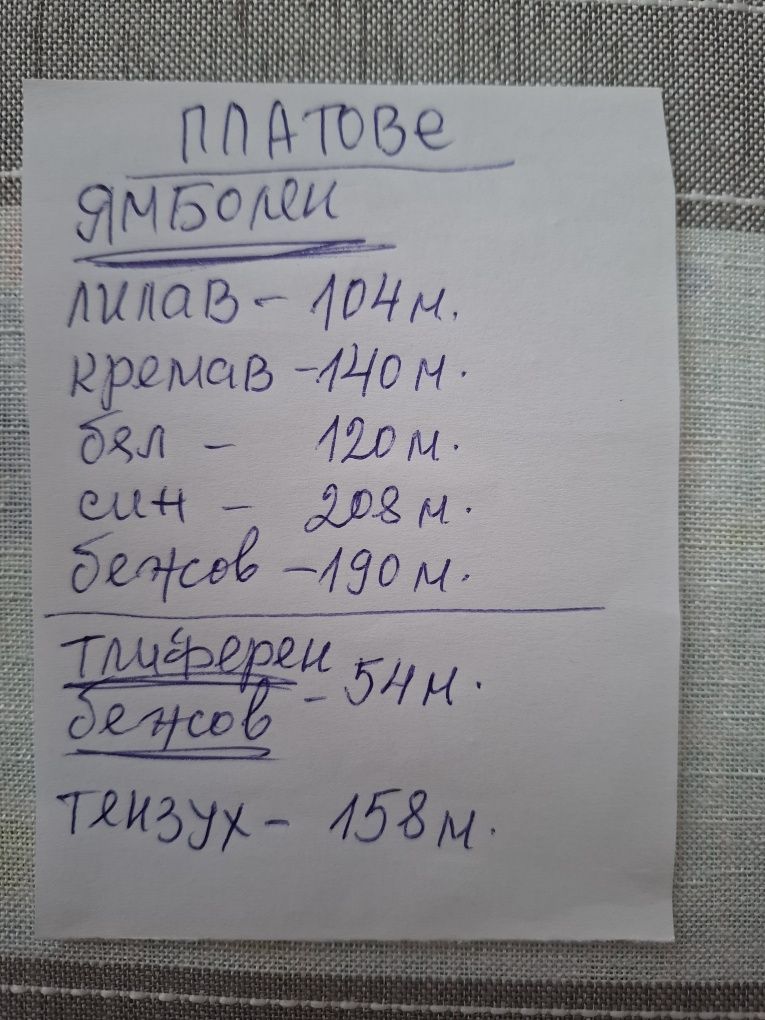 ПЛАТОВе
ЯМБОЛЕН
лилав - 104 м.
кремав - 140 м.
бял - 120 м.
син - 208 м.
бежов - 190 м.
тлиферен
бежов - 54 м.
тензух - 158 м.